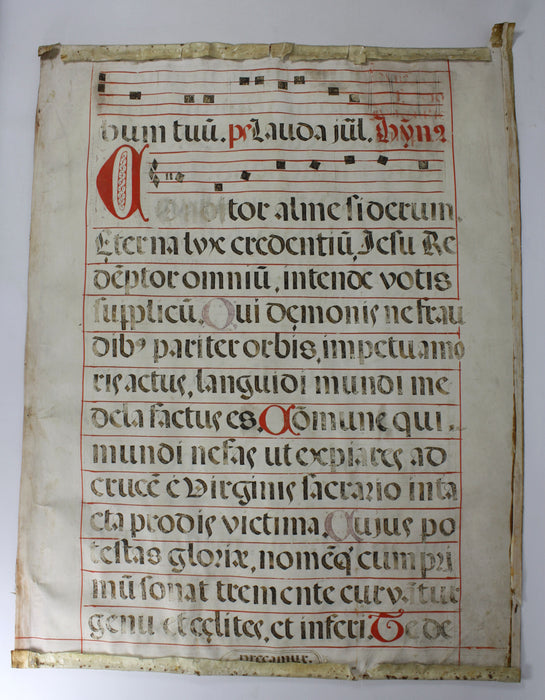 bum tuū. ps Lauda jūl. Hỹn?
Conditor alme siderum,
Eterna lux credentiū, Jesu Re
dēptor omniū, intende votis
supplicū. Qui dęmonis ne frau
dib⁹ pariter orbis, impetu amo
ris actus, languidi mundi me
dela factus es. Cōmune qui
mundi nefas ut expiares ad
crucē é Virginis sacrario inta
cta prodis victima. Cujus po
testas gloriæ, nomēq̃ cum pri
mū sonat tremente curvātur
genu et cęlites, et inferi. Te de
precamur.